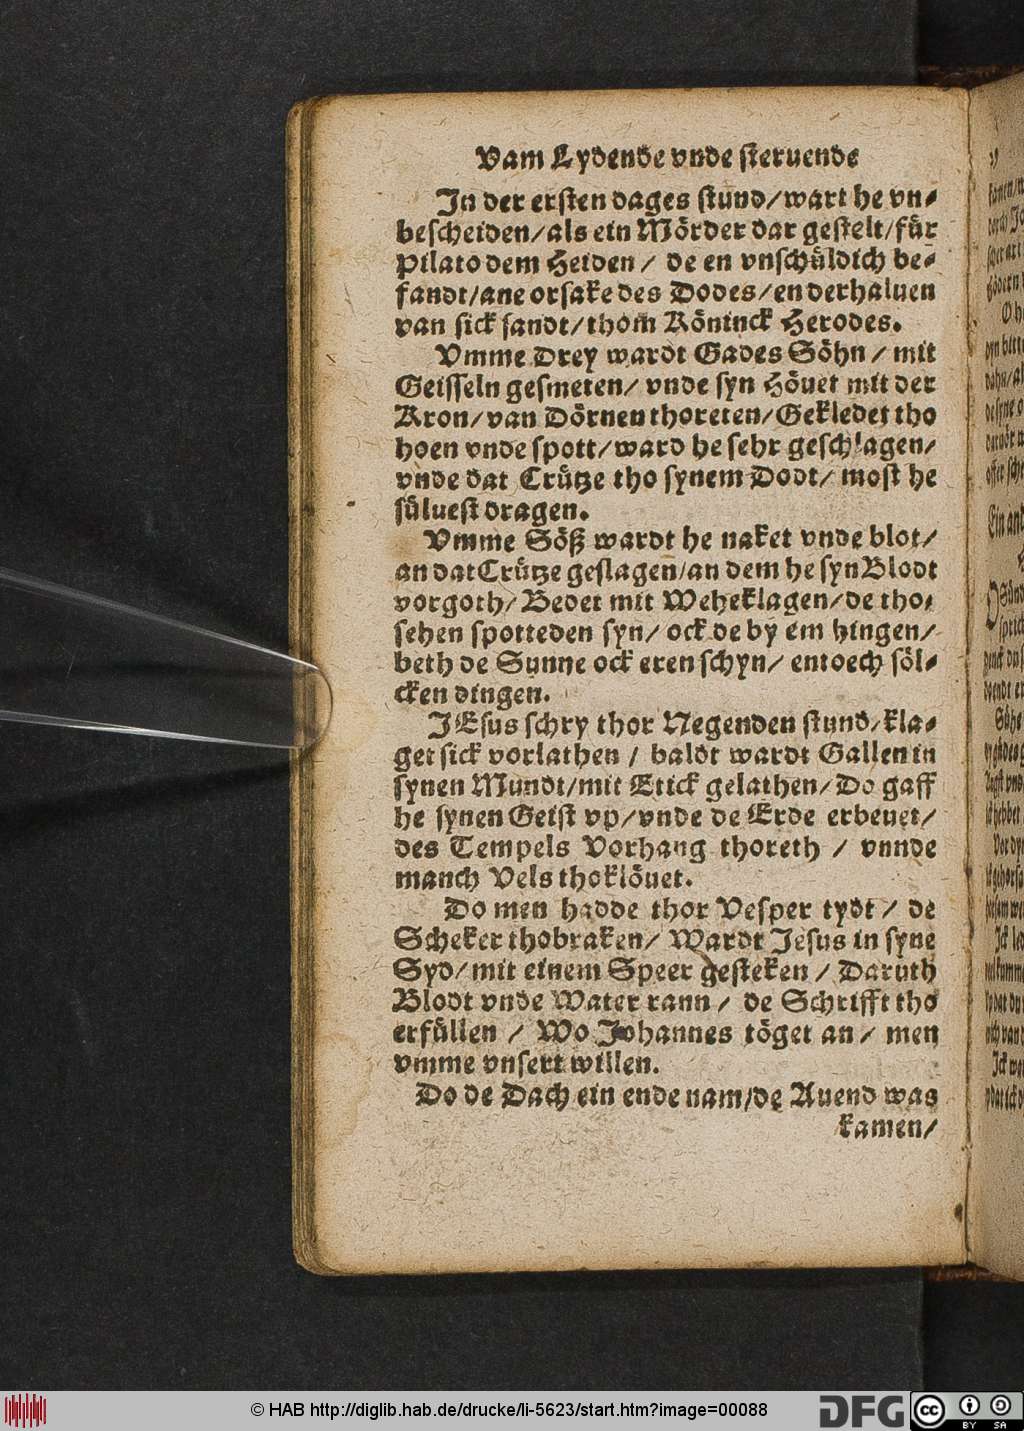 Vam Lydende vnde steruende
In der ersten dages stund/wart he vn-
bescheiden/als ein Mörder dar gestelt/für
Pilato dem Heiden / de en vnschüldich be-
fandt/ane orsake des Dodes/en derhaluen
van sick sandt/thom Köninck Herodes.
Vmme Drey wardt Gades Söhn / mit
Geisseln gesmeten/ vnde syn Höuet mit der
Kron/van Dörnen thoreten/Gekledet tho
hoen vnde spott/ward he sehr geschlagen/
vnde dat Crütze tho synem Dodt/ most he
süluest dragen.
Vmme Söß wardt he naket vnde blot/
an dat Crütze geslagen/an dem he syn Blodt
vorgoth/ Bedet mit Weheklagen/de tho-
sehen spotteden syn/ ock de by em hingen/
beth de Sunne ock eren schyn/ entoech söl-
cken dingen.
JEsus schry thor Negenden stund/kla-
get sick vorlathen / baldt wardt Gallen in
synen Mundt/mit Etick gelathen/Do gaff
he synen Geist vp/vnde de Erde erbeuet/
des Tempels Vorhang thoreth / vnnde
manch Vels thoklöuet.
Do men hadde thor Vesper tydt / de
Scheker thobraken/ Wardt Jesus in syne
Syd/mit einem Speer gesteken / Daruth
Blodt vnde Water rann / de Schrifft tho
erfüllen / Wo Johannes töget an / men
vmme vnsert willen.
Do de Dach ein ende nam/de Auend was
kamen/
© HAB http://diglib.hab.de/drucke/li-5623/start.htm?image=00088
DFG
cc BY SA